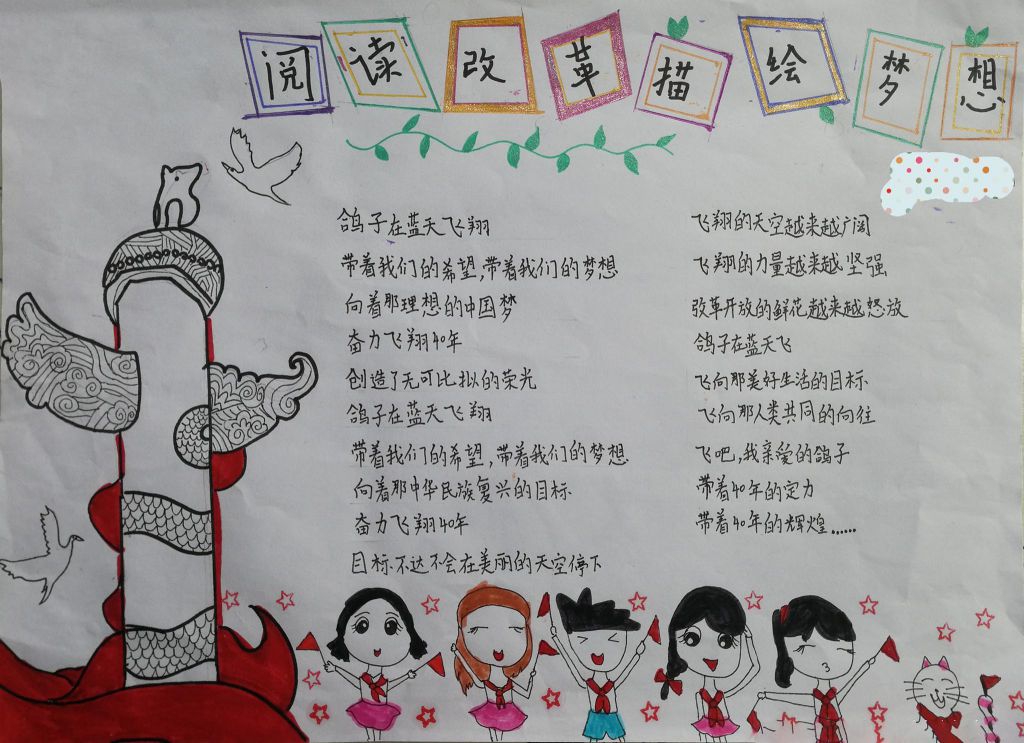 阅读改革描绘梦想
鸽子在蓝天飞翔
带着我们的希望,带着我们的梦想
向着那理想的中国梦
奋力飞翔40年
创造了无可比拟的荣光
鸽子在蓝天飞翔
带着我们的希望,带着我们的梦想
向着那中华民族复兴的目标
奋力飞翔40年
目标不达不会在美丽的天空停下
飞翔的天空越来越广阔
飞翔的力量越来越坚强
改革开放的鲜花越来越怒放
鸽子在蓝天飞
飞向那美好生活的目标
飞向那人类共同的向往
飞吧,我亲爱的鸽子
带着40年的定力
带着40年的辉煌……